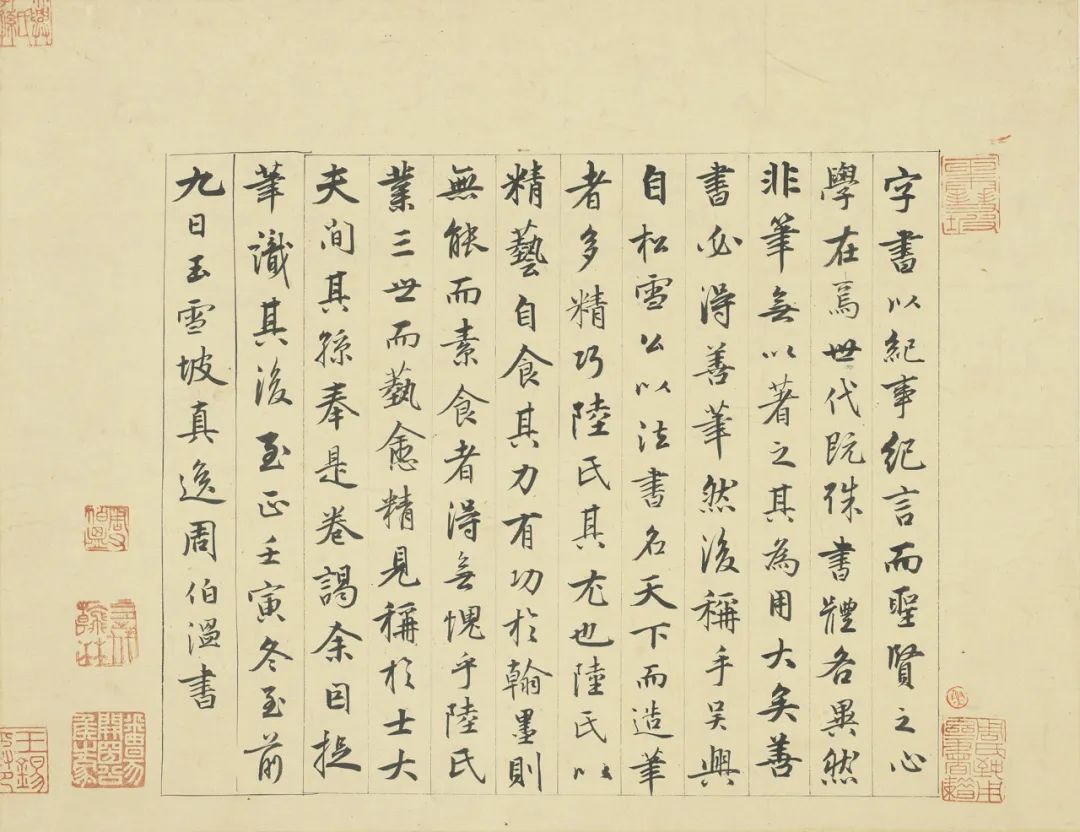 字書以紀事紀言而聖賢之心
學在焉世代既殊書體各異然
非筆無以著之其為用大矣善
書必得善筆然後稱手吳興
自松雪公以法書名天下而造筆
者多精巧陸氏其尤也陸氏以
精藝自食其力有功於翰墨則
無能而素食者得無愧乎陸氏
業三世而藝愈精見稱於士大
夫間其孫奉是卷謁余因提
筆識其後至正壬寅冬至前
九日玉雪坡真逸周伯溫書